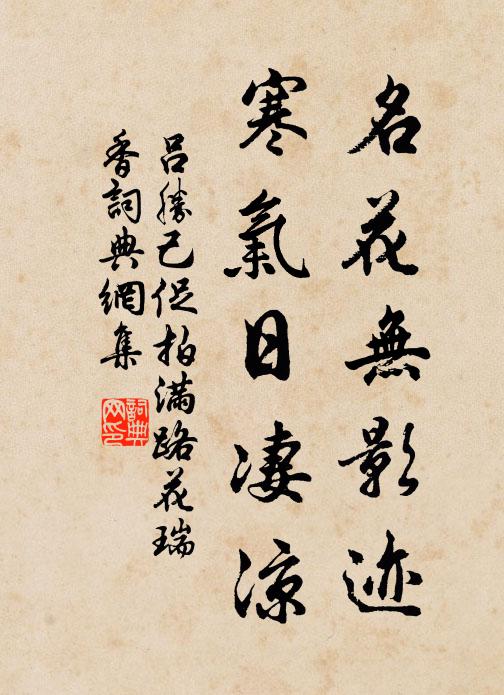 名花無影迹
寒氣日凄涼
呂勝己促拍滿路花瑞
香詞典網集
詞典網印